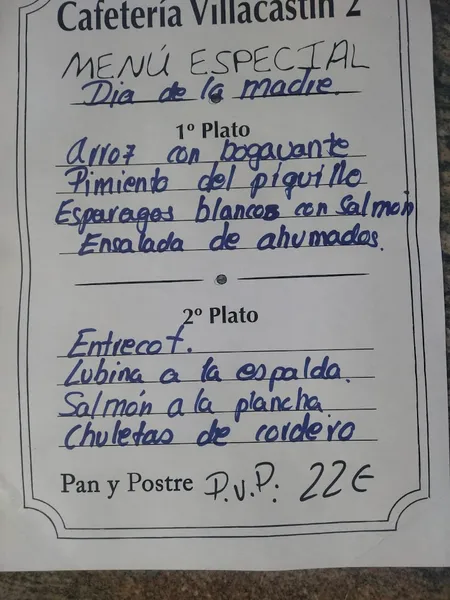 Cafetería Villacastín 2
MENÚ ESPECIAL
Dia de la madre.
1º Plato
Arroz con bogavante
Pimiento del piquillo
Esparagos blancos con salmón
Ensalada de ahumados.
2º Plato
Entrecot.
Lubina a la espalda.
Salmón a la plancha
Chuletas de cordero
Pan y Postre P.v.P. 22€